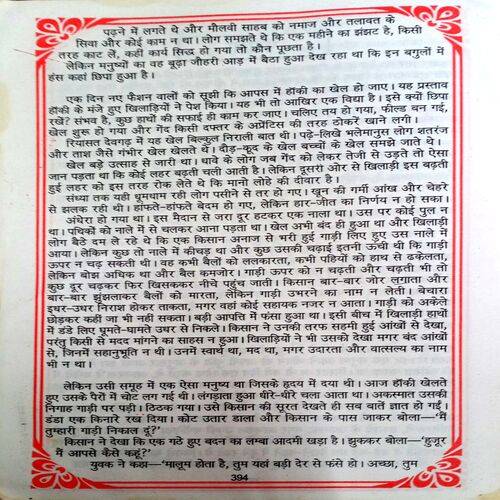 पढ़ने में लगते थे और मौलवी साहब को नमाज और तलावत के
सिवा और कोई काम न था। लोग समझते थे कि एक महीने का झंझट है, किसी
तरह काट लें, कहीं कार्य सिद्ध हो गया तो कौन पूछता है।
लेकिन मनुष्यों का वह बूढ़ा जौहरी आड़ में बैठा हुआ देख रहा था कि इन बगुलों में
हंस कहां छिपा हुआ है।
एक दिन नए फैशन वालों को सूझी कि आपस में हॉकी का खेल हो जाए। यह प्रस्ताव
हॉकी के मंजे हुए खिलाड़ियों ने पेश किया। यह भी तो आखिर एक विद्या है। इसे क्यों छिपा
रखें? संभव है, कुछ हाथों की सफाई ही काम कर जाए। चलिए तय हो गया, फील्ड बन गई,
खेल शुरू हो गया और गेंद किसी दफ्तर के अप्रेंटिस की तरह ठोकरें खाने लगी।
रियासत देवगढ़ में यह खेल बिल्कुल निराली बात थी। पढ़े-लिखे भलेमानुस लोग शतरंज
और ताश जैसे गंभीर खेल खेलते थे। दौड़-कूद के खेल बच्चों के खेल समझे जाते थे।
खेल बड़े उत्साह से जारी था। धावे के लोग जब गेंद को लेकर तेजी से उड़ते तो ऐसा
जान पड़ता था कि कोई लहर बढ़ती चली आती है। लेकिन दूसरी ओर से खिलाड़ी इस बढ़ती
हुई लहर को इस तरह रोक लेते थे कि मानो लोहे की दीवार है।
संध्या तक यही धूमधाम रही लोग पसीने से तर हो गए। खून की गर्मी आंख और चेहरे
से झलक रही थी। हांफते-हांफते बेदम हो गए, लेकिन हार-जीत का निर्णय न हो सका।
अंधेरा हो गया था। इस मैदान से जरा दूर हटकर एक नाला था। उस पर कोई पुल न
था। पथिकों को नाले में से चलकर आना पड़ता था। खेल अभी बंद ही हुआ था और खिलाड़ी
लोग बैठे दम ले रहे थे कि एक किसान अनाज से भरी हुई गाड़ी लिए हुए उस नाले में
आया। लेकिन कुछ तो नाले में कीचड़ था और कुछ उसकी चढ़ाई इतनी ऊंची थी कि गाड़ी
ऊपर न चढ़ सकती थी। वह कभी बैलों को ललकारता, कभी पहियों को हाथ से ढकेलता,
लेकिन बोझ अधिक था और बैल कमजोर। गाड़ी ऊपर को न चढ़ती और चढ़ती भी तो
कुछ दूर चढ़कर फिर खिसककर नीचे पहुंच जाती। किसान बार-बार जोर लगाता और
बार-बार झुंझलाकर बैलों को मारता, लेकिन गाड़ी उभरने का नाम न लेती। बेचारा
इधर-उधर निराश होकर ताकता, मगर वहां कोई सहायक नजर न आता। गाड़ी को अकेले
छोड़कर कहीं जा भी नहीं सकता। बड़ी आपत्ति में फंसा हुआ था। इसी बीच में खिलाड़ी हाथों
में डंडे लिए घूमते-घामते उधर से निकले। किसान ने उनकी तरफ सहमी हुई आंखों से देखा,
परंतु किसी से मदद मांगने का साहस न हुआ। खिलाड़ियों ने भी उसको देखा मगर बंद आंखों
से, जिनमें सहानुभूति न थी। उनमें स्वार्थ था, मद था, मगर उदारता और वात्सल्य का नाम
भी न था।
लेकिन उसी समूह में एक ऐसा मनुष्य था जिसके हृदय में दया थी। आज हॉकी खेलते
हुए उसके पैरों में चोट लग गई थी। लंगड़ाता हुआ धीरे-धीरे चला आता था। अकस्मात उसकी
निगाह गाड़ी पर पड़ी। ठिठक गया। उसे किसान की सूरत देखते ही सब बातें ज्ञात हो गईं।
डंडा एक किनारे रख दिया। कोट उतार डाला और किसान के पास जाकर बोला—'मैं
तुम्हारी गाड़ी निकाल दूं?'
किसान ने देखा कि एक गठे हुए बदन का लम्बा आदमी खड़ा है। झुककर बोला—'हुजूर
मैं आपसे कैसे कहूं?'
युवक ने कहा—'मालूम होता है, तुम यहां बड़ी देर से फंसे हो। अच्छा, तुम
394